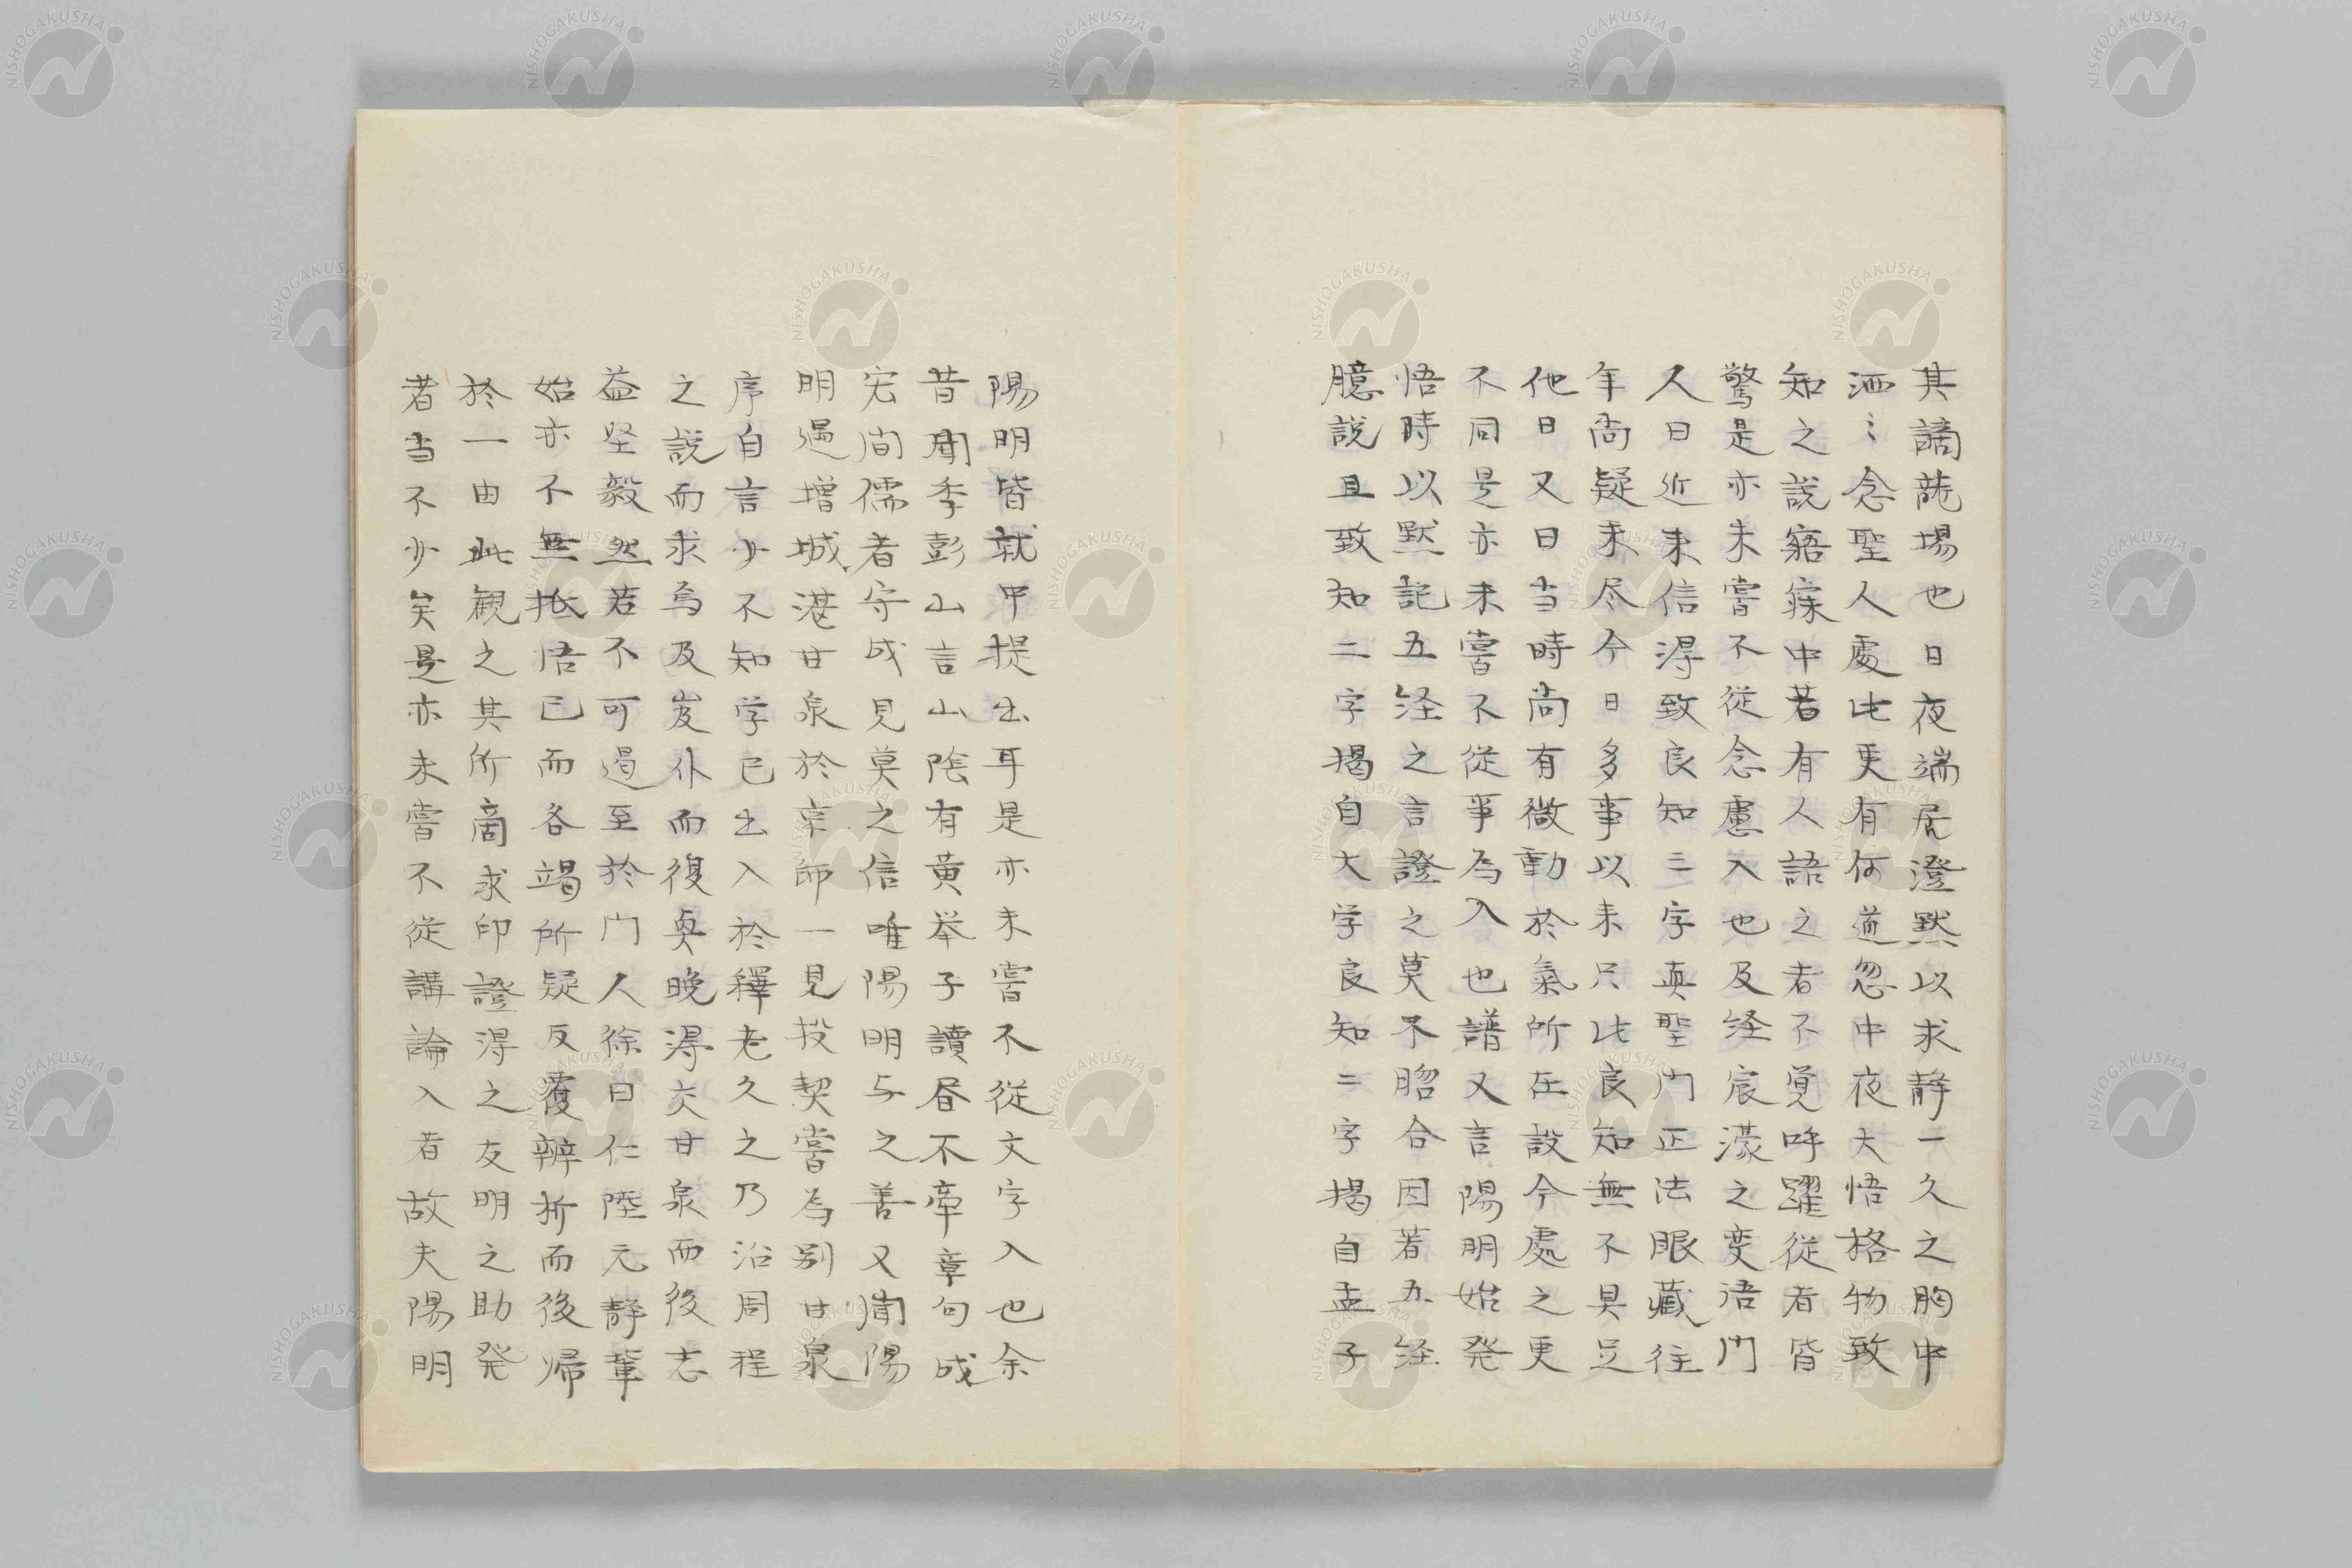 其謫龍場也日夜端居澄默以求静一久之胸中
洒〻念聖人處此更有何道忽中夜大悟格物致
知之説寤寐中若有人語之者不覚呼躍従者皆
驚是亦未嘗不従念慮入也及経宸濠之変語門
人曰近来信得致良知三字真聖門正法眼藏往
年尚疑未尽今日多事以来只此良知無不具足
他日又曰当時尚有微動於氣所在設今處之更
不同是亦未嘗不従事為入也譜又言陽明始発
悟時以默記五経之言證之莫不脗合因著五経
臆説且致知二字掲自大学良知二字掲自孟子
陽明皆就中提出耳是亦未嘗不従文字入也余
昔聞季彭山言山陰有黄挙子讀昼不牽章句成
宏間儒者守成見莫之信唯陽明与之善又聞陽
明遇増城湛甘泉於京師一見投契嘗為別甘泉
序自言少不知学已出入於釋老久之乃沿周程
之説而求焉及岌仆而復興晩得交甘泉而後志
益坚毅然若不可遏至於門人徐曰仁陸元静輩
始亦不無抵牾已而各竭所疑反覆辨析而後帰
於一由此観之其所商求印證得之友明之助発
者当不少矣是亦未嘗不従講論入者故夫陽明